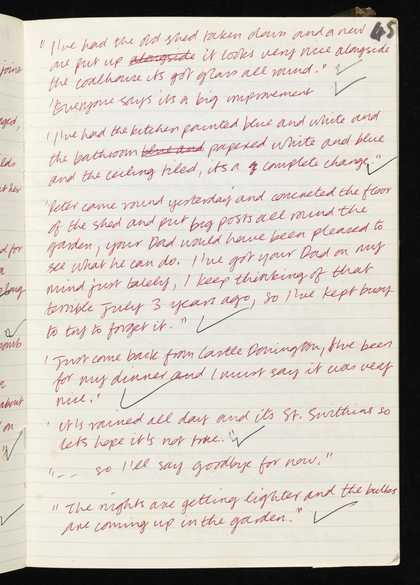 45
"I've had the old shed taken down and a new
one put up alongside it looks very nice alongside
the coalhouse its got glass all round."
'Everyone says its a big improvement
'I've had the kitchen painted blue and white and
the bathroom blue and papered white and blue
and the ceiling tiled, its a complete change."
'Peter came round yesterday and concreted the floor
of the shed and put big posts all round the
garden, your Dad would have been pleased to
see what he can do. I've got your Dad on my
mind just lately, I keep thinking of that
terrible July 3 years ago, so I've kept busy
to try to forget it."
'Just come back from Castle Donington, I've been
for my dinner and I must say it was very
nice.'
'It's rained all day and its St. Swithins so
lets hope it's not true."
"--- so I'll say goodbye for now."
"The nights are getting lighter and the bulbs
are coming up in the garden."